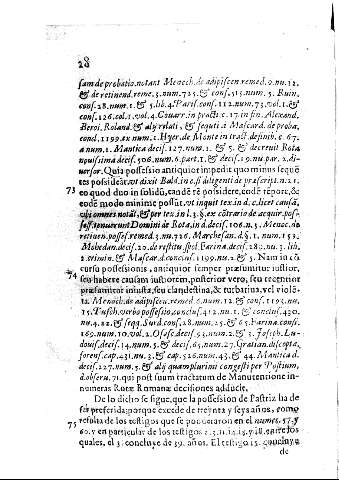 28
sam de probatio. notant Menoch. de adipiscen remed. 9. nu. 12.
& de retinend. reme. 3. num. 725. & conf. 515. num. 5. Ruin.
conf. 28. num. 1. & 5. lib. 4. Paris. conf. 112. num. 73. vol. 1. &
conf. 126. col. 1. vol. 4. Couarr. in pract. c. 17. in fin. Alexand.
Beroi, Roland. & alij relati, & sequuti à Mascard. de proba.
cond. 1199. ex num. 1. Hyer. de Monte in tract. definib. c. 67.
à num. 1. Mantica decis. 127. num. 1. & 5. & decreuit Rota
nouissima decis. 506. num. 6. part. 1. & decis. 19. nu par. 2. di-
uersor. Quia possessio antiquior impedit quo minus seques
tes possideāt, vt dixit Bald. in c. fi diligenti de præscript. n. 21.
73 eo quod duo in solidū, eandē rē possidere, eodē tēpore, &
eodē modo minime possūt, vt inquit tex. in d. c. licet causā,
vbi omnes notāt, & per tex. in l. 3. §. ex cōtrario de acquir. pos-
sess. tenuerunt Domini de Rota, in d. decis. 106. n. 5. Menoc. de
retinen. posses. remed. 3. nu. 726. Marchesan. d. §. 1. num. 152.
Mohedan. decis. 20. de restitu. spol. Farina. decis. 280. nu. 5. lib.
2. crimin. & Mascard. conclus. 1199. nu. 2. & 5. Nam in cō
cursu possessionis, antiquior semper præsumitur iustior,
74 seu habere causam iustiorem, posterior vero, seu recentior
præsumitur iniusta, seu clandestina, & turbatiua, vel violē-
ta. Menoch. de adipiscen. remed. 9. num. 12. & conf. 1193. nu.
15. Tusch. verbo possessio, conclus. 412. nu. 1. & conclus. 430.
nu. 4. 22. & seqq. Surd. conf. 28. num. 25. & 65. Farina. cons.
169. num. 10. vol. 2. Osasc. decis. 93. num. 2. & 3. Joseph. Lu-
douis. decis. 14. num. 5. & decis. 65. num. 27. Gratian. discepta.
forens. cap. 431. nu. 3. & cap. 526. num. 43. & 44. Mantica d.
decis. 127. num. 5. & alij quamplurimi congesti per Postium,
d. obseru. 71. qui post suum tractatum de Manutentione in-
numeras Rotæ Romanæ decisiones adducit.
De lo dicho se sigue, que la possession de Pastriz ha de
75 ser preferida; porque excede de treynta y seys años, como
resulta de los testigos que se ponderaron en el numes. 57. y
60. y en particular de los testigos 2. 3. 11. 14. 15. y 18. entre los
quales, el 3. concluye de 39. años. El testigo 15. concluye
de